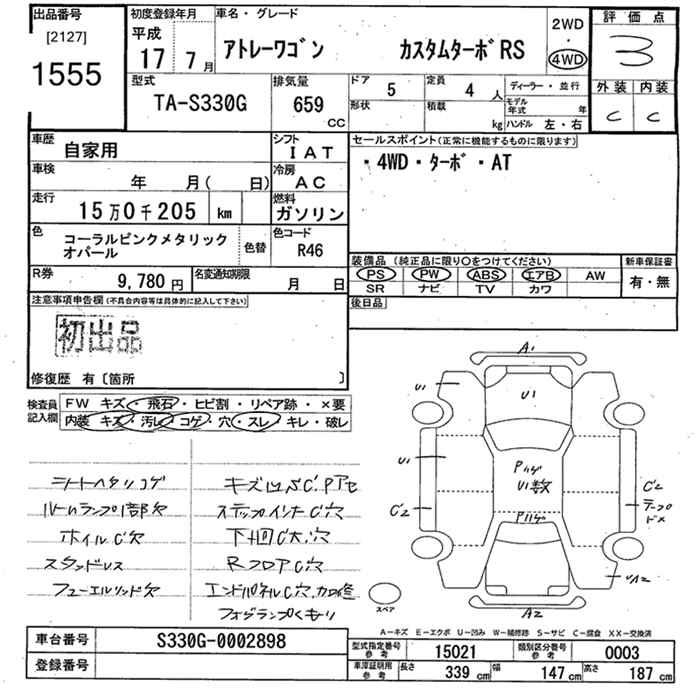 出品番号
[2127]
1555
初度登録年月
平成
17 7月
車名・グレード
アトレーワゴン カスタムターボRS
2WD
・
4WD
評価点
3
外装 内装
C C
型式
TA-S330G
排気量
659
CC
ドア 5
定員 4人
形状
積載 kg
ディーラー・並行
モデル年式 年
ハンドル 左・右
車歴 自家用
シフト IAT
車検 年 月( 日)
冷房 AC
走行 15万0千205 km
燃料 ガソリン
色 コーラルピンクメタリック
オパール
色替
色コード R46
R券 9,780円
名変通知期限 月 日
セールスポイント(正常に機能するものに限ります)
・4WD・ターボ・AT
装備品(純正品に限り○をつけてください)
PS PW ABS エアB AW
SR ナビ TV カワ
新車保証書
有・無
後日品
注意事項申告欄(不具合内容等は具体的に記入して下さい)
初出品
修復歴 有〔箇所 〕
検査員
記入欄
FW キズ・飛石・ヒビ割・リペア跡・×要
内装 キズ・汚レ・コゲ・穴・スレ・キレ・破レ
シートヘタリコゲ
ルームランプ1部欠
ホイルC欠
スタッドレス
フューエルリッド欠
ステップインナC穴
下回C大穴
RフロアC穴
フォグランプくもり
A1
U1
U1
U1
U1数
C2
C2
A2
スペア
A-キズ E-エクボ U-凹み W-補修跡 S-サビ C-腐食 XX-交換済
車台番号 S330G-0002898
登録番号
型式指定番号
参考
15021
類別区分番号
参考
0003
車庫証明用
参考
長さ 339cm 幅 147cm 高さ 187cm